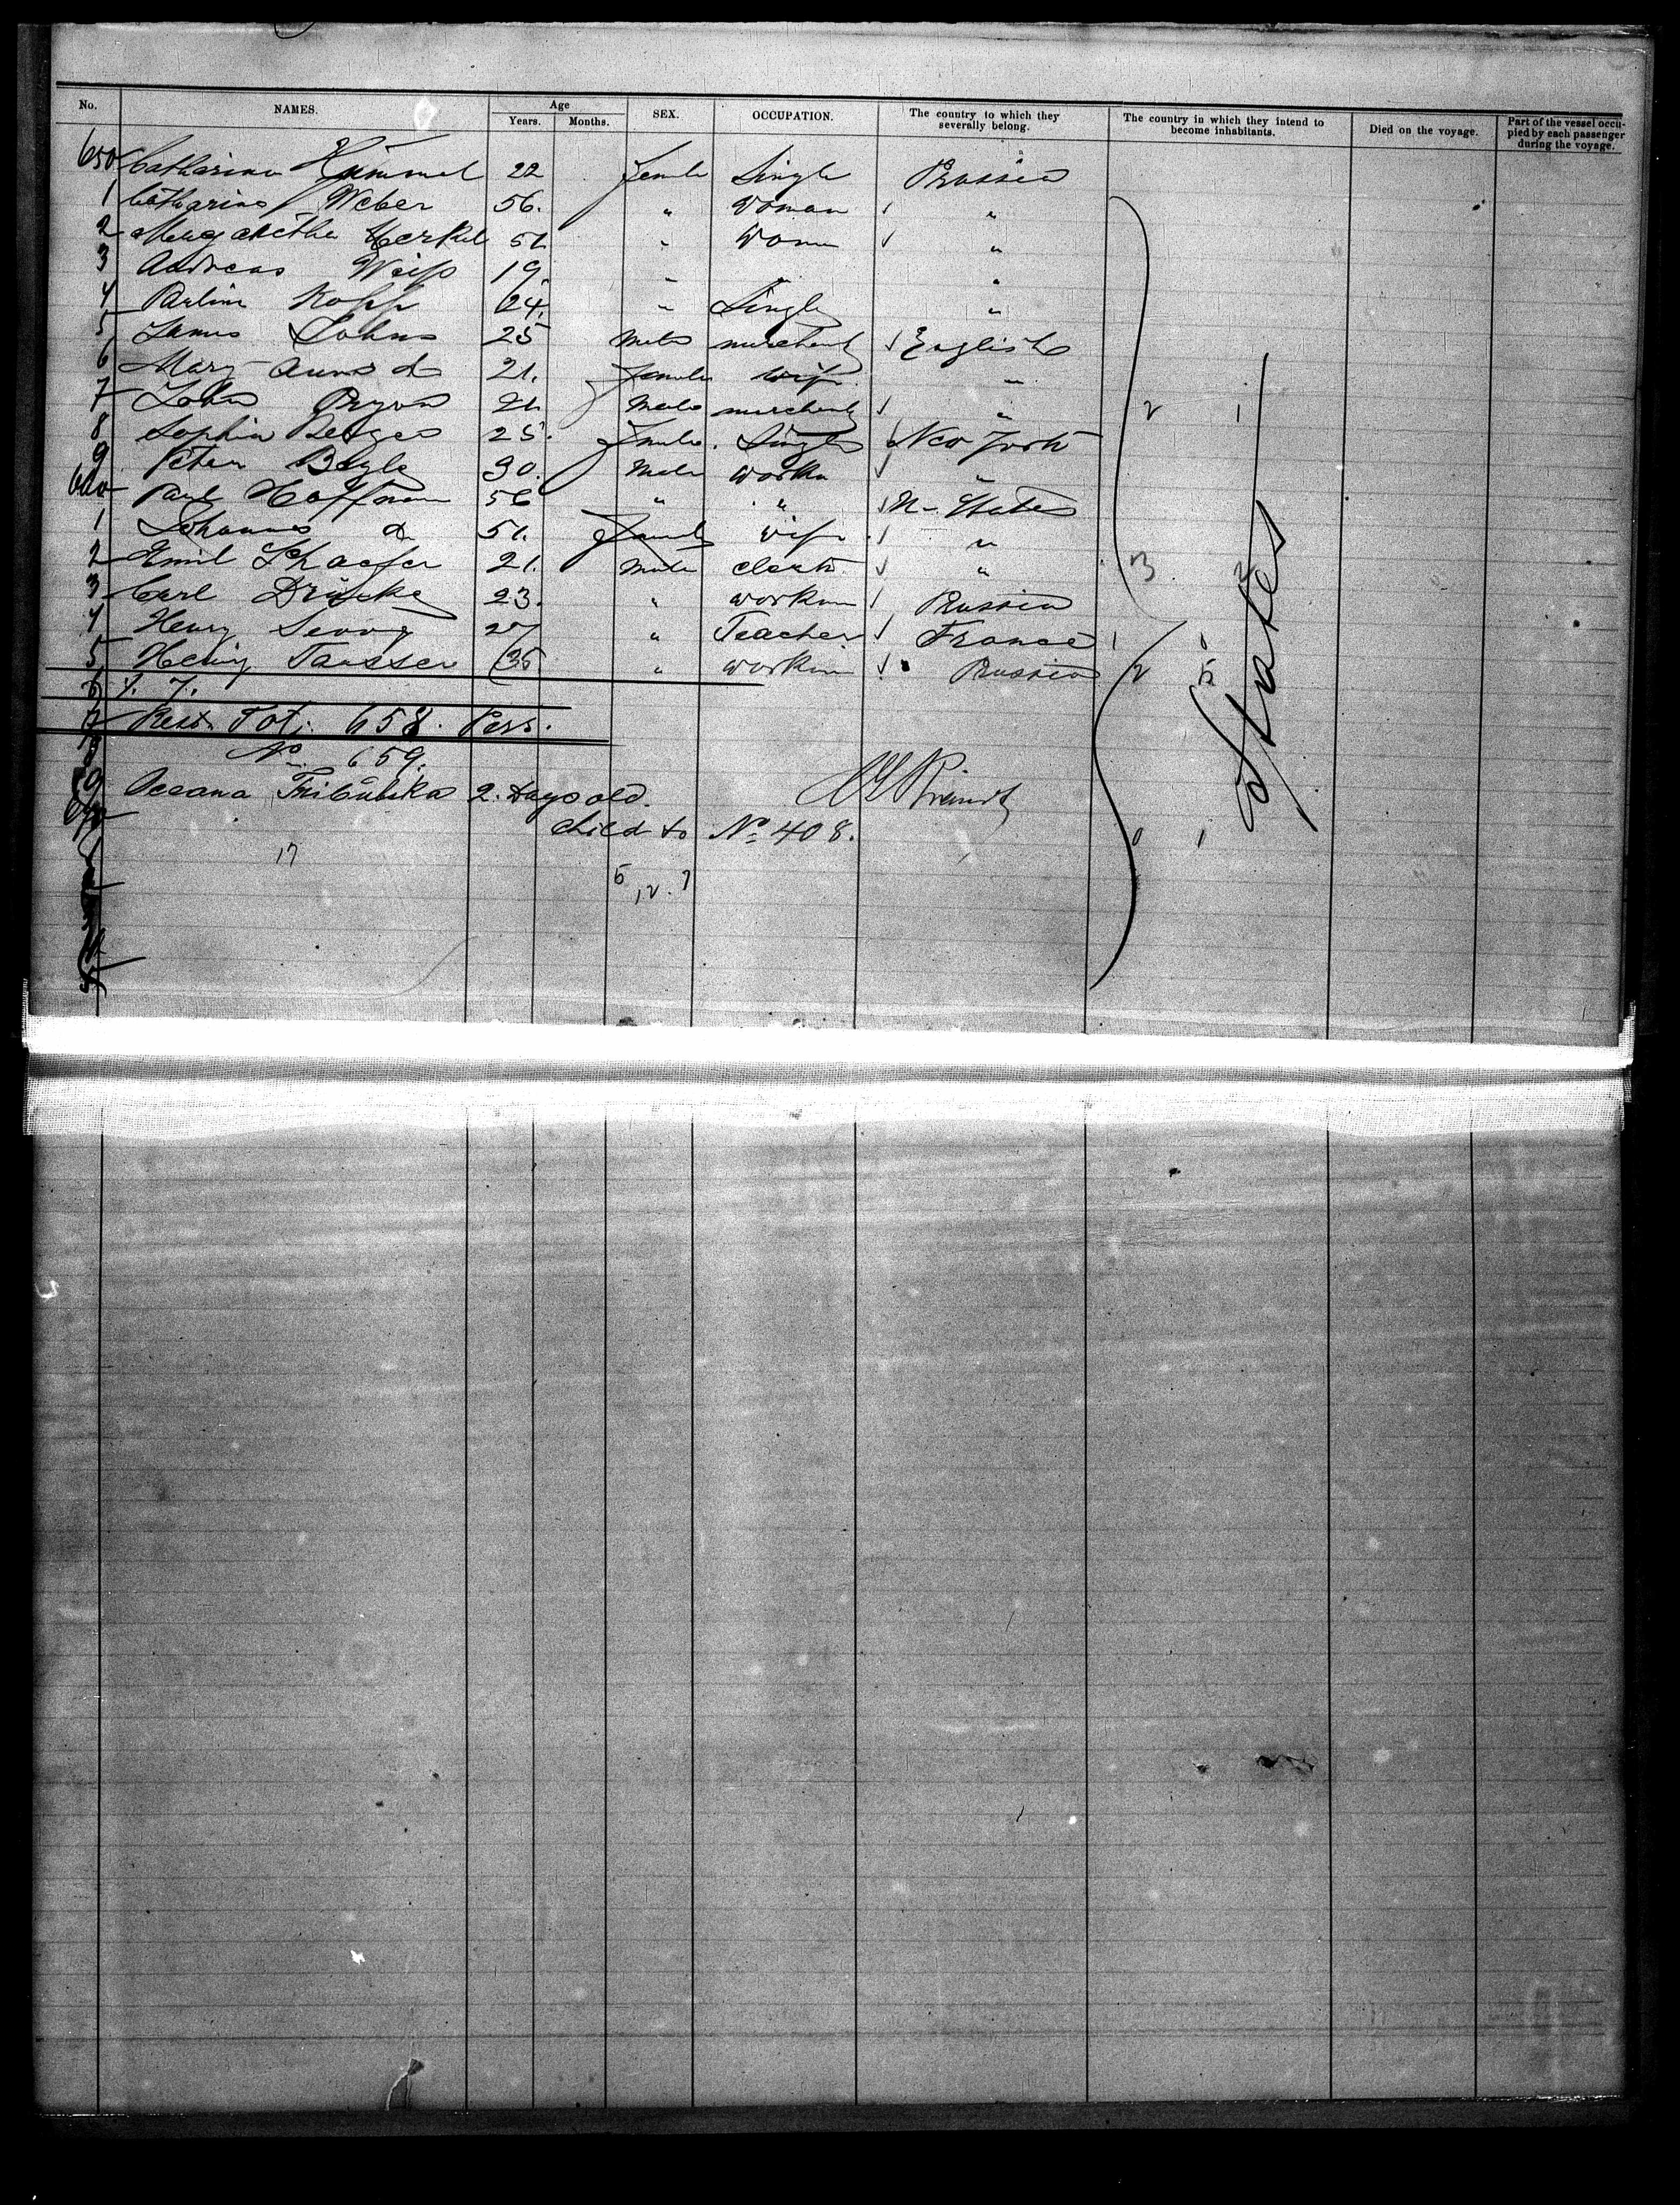 No. NAMES. Age Years. Months. SEX. OCCUPATION. The country to which they severally belong. The country in which they intend to become inhabitants. Died on the voyage. Part of the vessel occupied by each passenger during the voyage.
650 Catharina Hümmel 22 Female Single Prussia
1 Catharina Weber 56. " Woman "
2 Margaretha Merkel 51 " Woman "
3 Andreas Weiss 19. " "
4 Paulina Kopp 24. " Single "
5 James Johns 25 Male merchant English
6 Mary Anna do 21. Female wife "
7 John Pryor 21 Male merchant "
8 Sophia 25. Female. Single New York
9 Peter 30. Male workm "
660 Paul Hoffmann 56 " " U. States
1 Johanna do 51. Female wife "
2 Emil Schaefer 21. Male clerk "
3 Carl Drücke 23. " workman Prussia
4 Henry 27 " Teacher France
5 Henry 35 " workm Prussia
6
7 Tot: 658. Pers.
No 659.
Oceana Tribulika 2. Days old.
child to No 408.
17
States